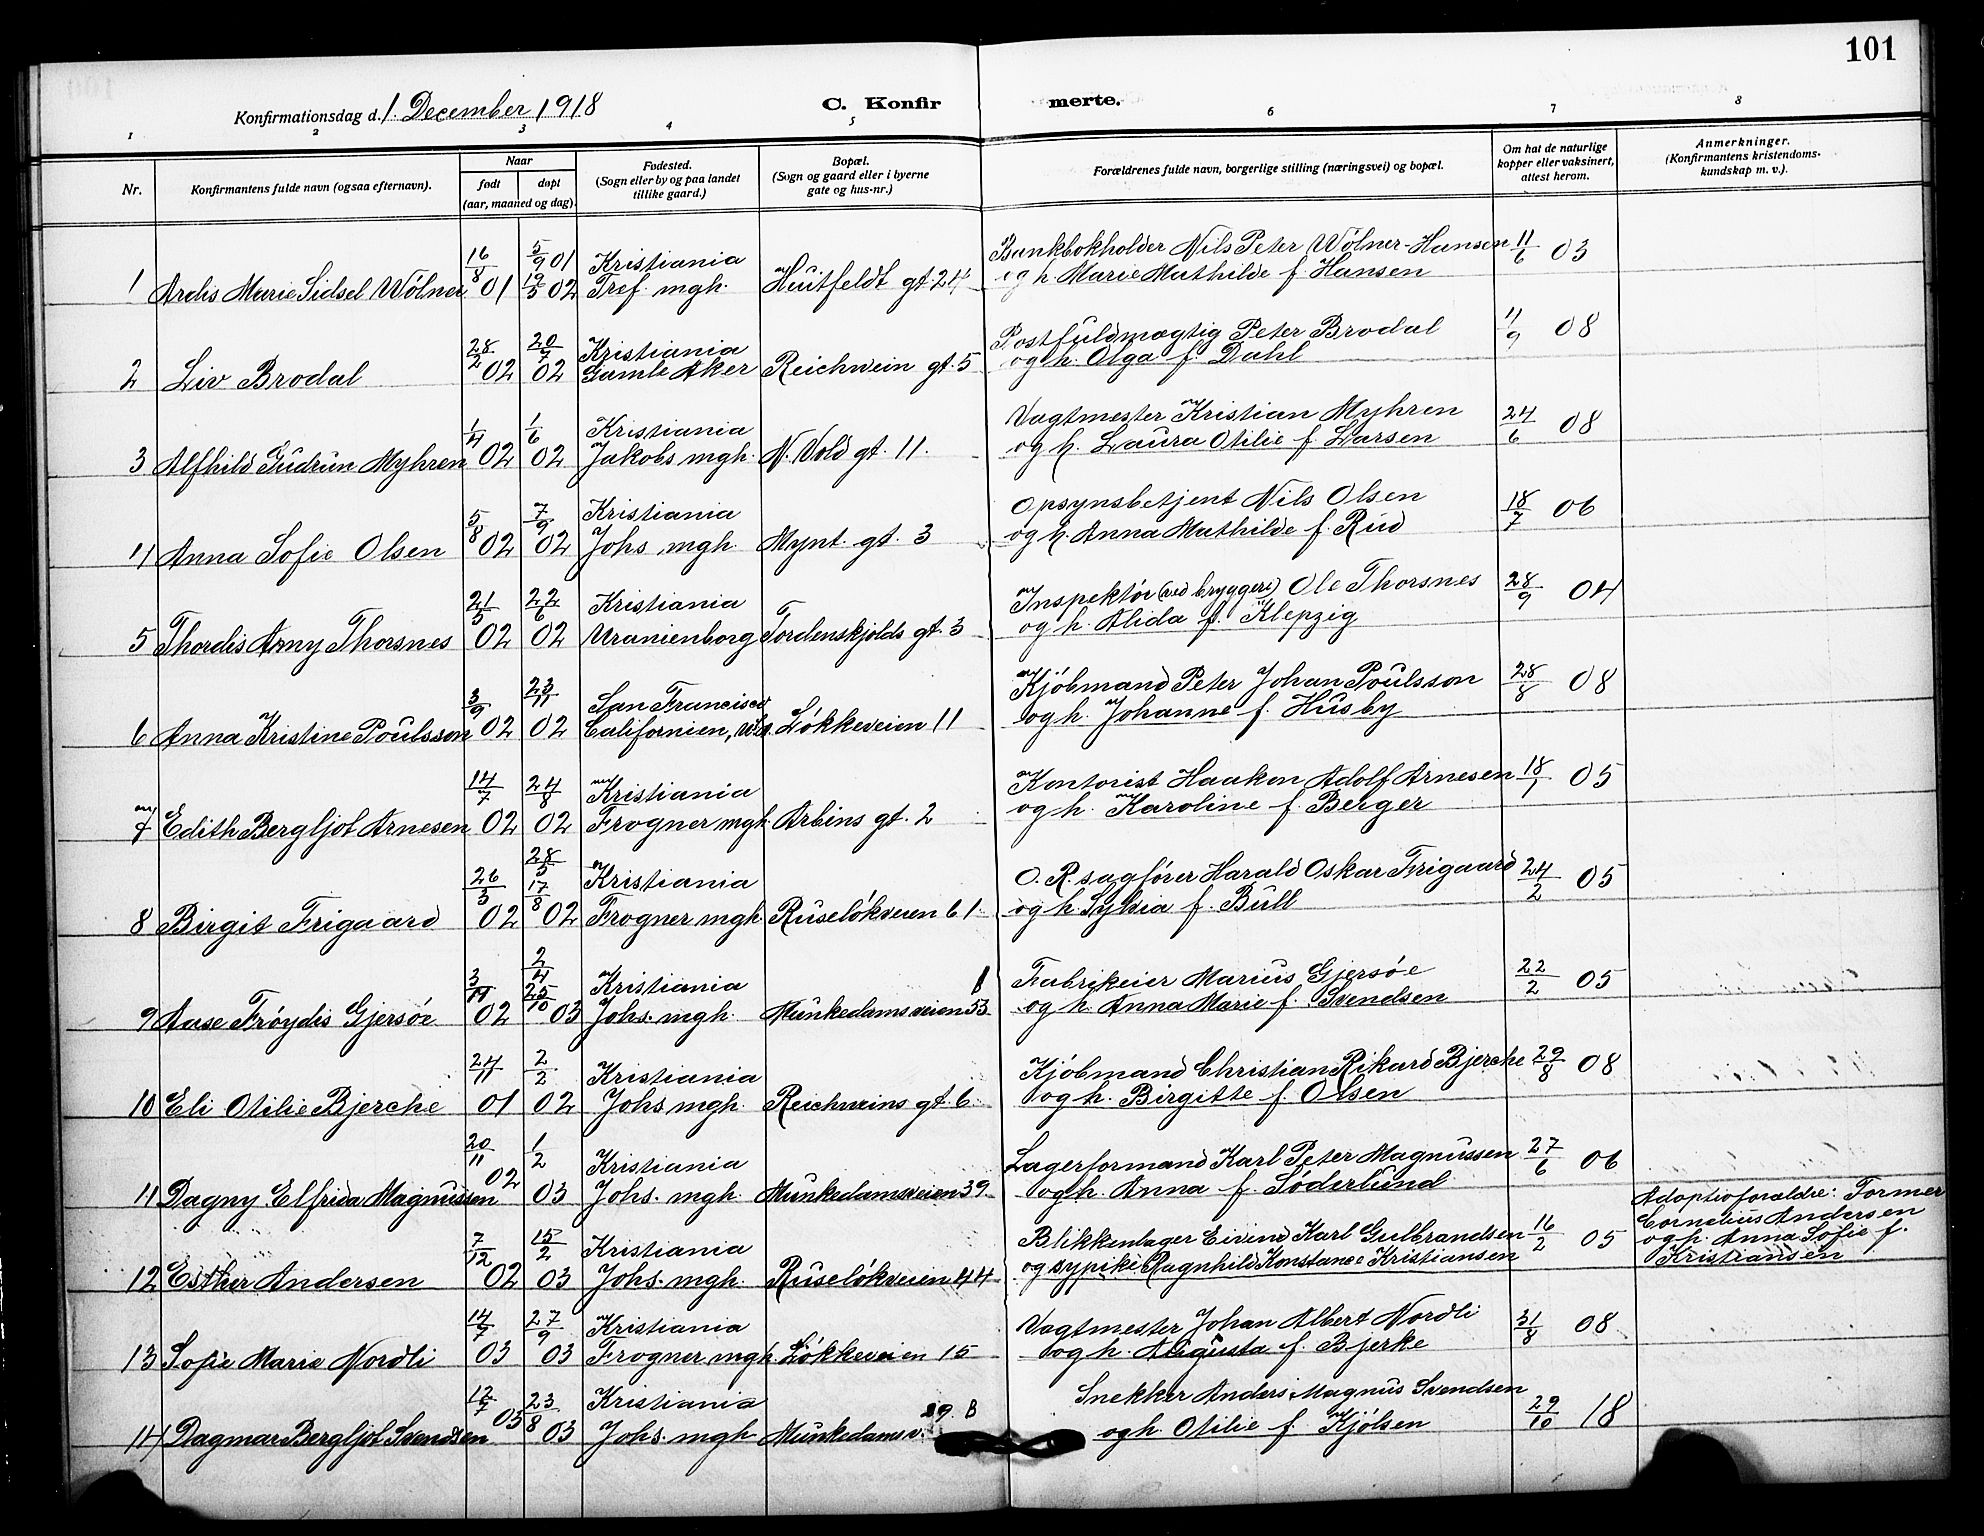 101
Konfirmationsdag d. 1. December 1918
C. Konfirmerte.
1 2 3 4 5 6 7 8
Nr.
Konfirmantens fulde navn (ogsaa efternavn).
Naar
født
døpt
(aar, maaned og dag).
Fødested.
(Sogn eller by og paa landet
tillike gaard.)
Bopæl.
(Sogn og gaard eller i byerne
gate og hus-nr.)
Forældrenes fulde navn, borgerlige stilling (næringsvei) og bopæl.
Om hat de naturlige
kopper eller vaksinert,
attest herom.
Anmerkninger.
(Konfirmantens kristendoms-
kundskap m. v.).
1 Ardis Marie Sidsel Wölner 16/8 01 5/9 01 19/5 02 Kristiania Tref. mgh. Huitfeldt gt. 24 Bankbokholder Nils Peter Wölner-Hansen 11/6 03
og h. Marie Mathilde f. Hansen
2 Liv Brodal 28/2 02 20/7 02 Kristiania Gamle Aker Reichwein gt. 5 Postfuldmægtig Peter Brodal 11/9 08
og h. Olga f. Dahl
3 Alfhild Gudrun Myhren 1/4 02 1/6 02 Kristiania Jakobs mgh. N. Vold gt. 11. Vagtmester Kristian Myhren 24/6 08
og h. Laura Otilie f. Larsen
4 Anna Sofie Olsen 5/8 02 7/9 02 Kristiania Johs mgh. Mynt. gt. 3 Opsynsbetjent Nils Olsen 18/7 06
og h. Anna Mathilde f. Rud
5 Thordis Amy Thorsnes 21/5 02 22/6 02 Kristiania Uranienborg Tordenskjolds gt. 3 Inspektør (ved bryggeri) Ole Thorsnes 28/9 04
og h. Alida f. Klepzig
6 Anna Kristine Poulsson 3/9 02 23/11 02 San Francisco Californien, Løkkeveien 11 Kjøbmand Peter Johan Poulsson 28/8 08
og h. Johanne f. Husby
7 Edith Bergljot Arnesen 14/7 02 24/8 02 Kristiania Frogner mgh. Arbins gt. 2 Kontorist Haakon Adolf Arnesen 18/1 05
og h. Karoline f. Berger
8 Birgit Frigaard 26/3 02 28/5 17/8 02 Kristiania Frogner mgh. Ruseløkveien 61. O. R. sagfører Harald Oskar Frigaard 24/2 05
og h. Sylvia f. Bull
9 Aase Frøydis Gjersøe 3/11 02 2/4 25/10 03 Kristiania Johs. mgh. Munkedamsveien 53 B Fabrikeier Marius Gjersøe 22/2 05
og h. Anna Marie f. Svendsen
10 Eli Otilie Bjerche 24/11 01 2/2 02 Kristiania Johs mgh. Reichweins gt. 6. Kjøbmand Christian Rikard Bjerche 29/8 08
og h. Birgitte f. Olsen
11 Dagny Elfrida Magnussen 20/11 02 1/2 03 Kristiania Johs. mgh. Munkedamsveien 39. Lagerformand Karl Peter Magnussen 27/6 06
og h. Anna f. Söderlund
12 Esther Andersen 7/12 02 15/2 03 Kristiania Johs. mgh. Ruseløkveien 44 Blikkenslager Eivind Karl Gulbrandsen 16/2 05
og sypike Ragnhild Konstance Kristiansen
Adoptivforældre: Former
Cornelius Andersen
og h. Anna Sofie f.
Kristiansen
13 Sofie Marie Nordli 14/7 03 27/9 03 Kristiania Frogner mgh. Løkkeveien 15 Vagtmester Johan Albert Nordli 31/8 08
og h. Augusta f. Bjerke
14 Dagmar Bergljot Svendsen 12/7 03 23/8 03 Kristiania Johs. mgh. Munkedamsv. 29. B Snekker Anders Magnus Svendsen 29/10 18
og h. Otilie f. Kjølsen